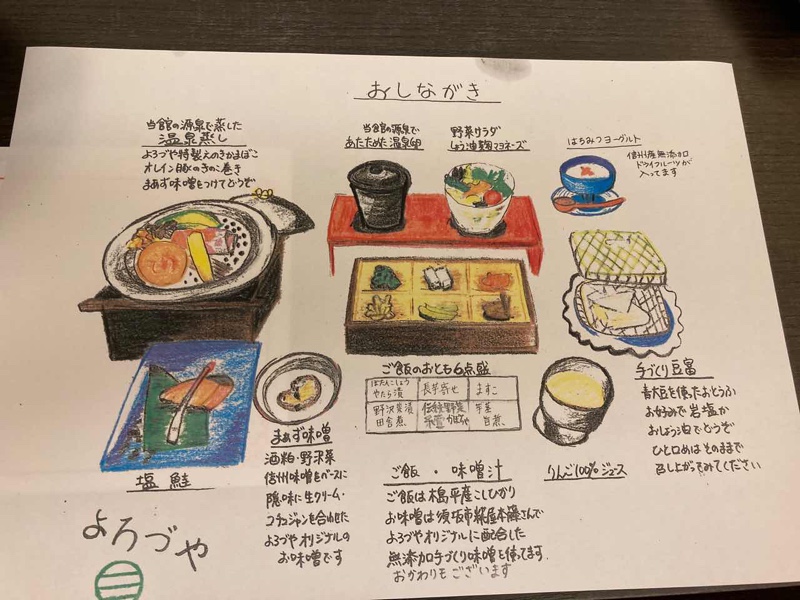 おしながき
当館の源泉で蒸した
温泉蒸し
よろづや特製えのきかまぼこ
オレイン豚のきのこ巻き
まぁず味噌をつけてどうぞ
当館の源泉で
あたためた温泉卵
野菜サラダ
しょう油麹マヨネーズ
はちみつヨーグルト
信州産無添加
ドライフルーツが
入ってます
塩鮭
まぁず味噌
酒粕・野沢菜
信州味噌をベースに
隠味に生クリーム・
コチュジャンを合わせた
よろづやオリジナルの
お味噌です
ご飯のおとも6点盛
ぼたんこしょう
やたら漬
長芋寄せ
ますこ
野沢菜漬
田舎煮
旨煮
ご飯・味噌汁
ご飯は木島平産こしひかり
お味噌は須坂市糀屋本藤さんで
よろづやオリジナルに配合した
無添加手づくり味噌を使ってます
おかわりもございます
りんご100%ジュース
手づくり豆腐
青大豆を使ったおとうふ
お好みで岩塩か
おしょう油でどうぞ
ひと口めはそのままで
召し上がってみてください
よろづや